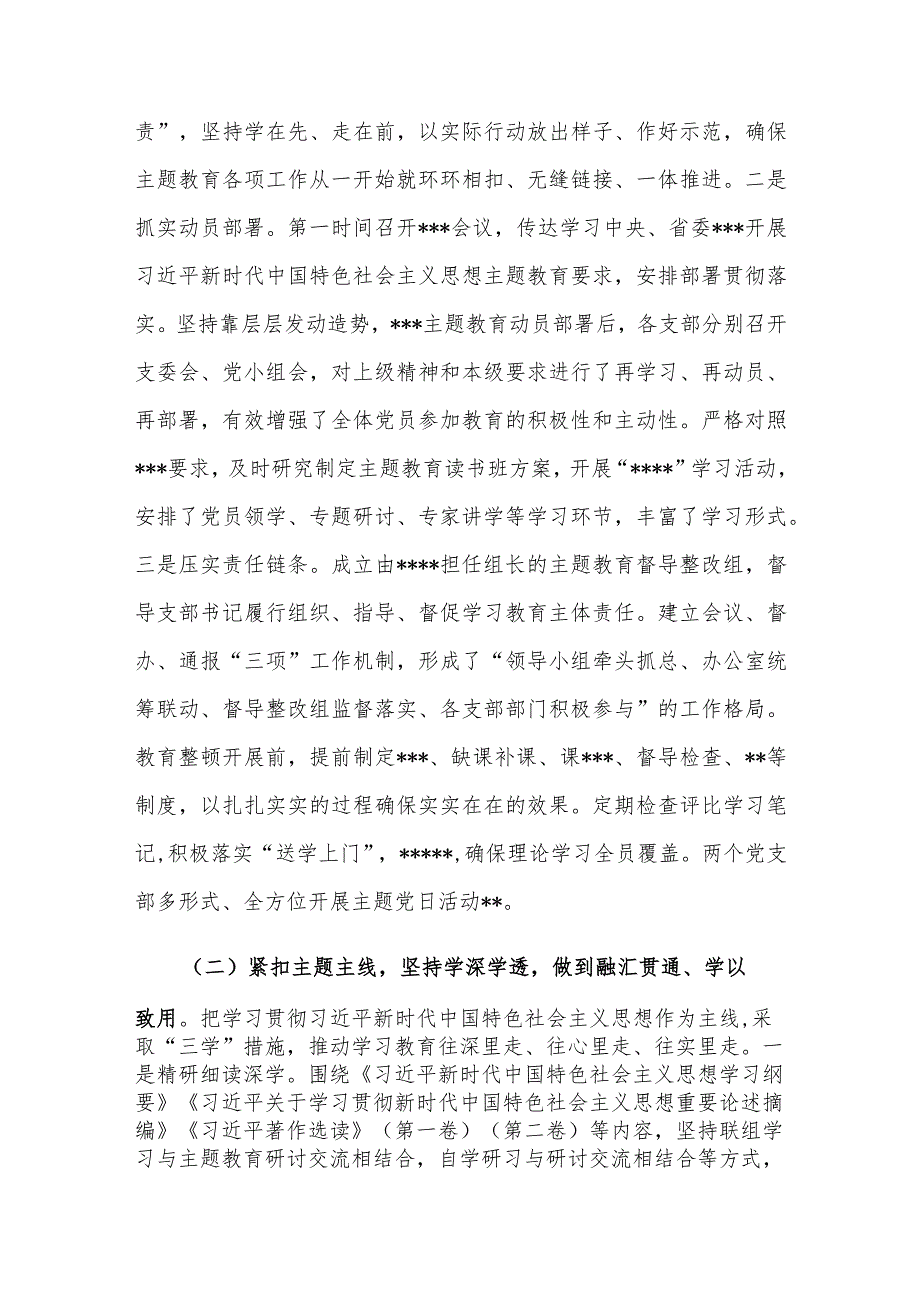 责”，坚持学在先、走在前，以实际行动放出样子、作好示范，确保
主题教育各项工作从一开始就环环相扣、无缝链接、一体推进。二是
抓实动员部署。第一时间召开***会议，传达学习中央、省委***开展
习近平新时代中国特色社会主义思想主题教育要求，安排部署贯彻落
实。坚持靠层层发动造势，***主题教育动员部署后，各支部分别召开
支委会、党小组会，对上级精神和本级要求进行了再学习、再动员、
再部署，有效增强了全体党员参加教育的积极性和主动性。严格对照
***要求，及时研究制定主题教育读书班方案，开展“****”学习活动，
安排了党员领学、专题研讨、专家讲学等学习环节，丰富了学习形式。
三是压实责任链条。成立由****担任组长的主题教育督导整改组，督
导支部书记履行组织、指导、督促学习教育主体责任。建立会议、督
办、通报“三项”工作机制，形成了“领导小组牵头抓总、办公室统
筹联动、督导整改组监督落实、各支部部门积极参与”的工作格局。
教育整顿开展前，提前制定***、缺课补课、课***、督导检查、**等
制度，以扎扎实实的过程确保实实在在的效果。定期检查评比学习笔
记,积极落实“送学上门”，*****,确保理论学习全员覆盖。两个党支
部多形式、全方位开展主题党日活动**。
（二）紧扣主题主线，坚持学深学透，做到融汇贯通、学以
致用。把学习贯彻习近平新时代中国特色社会主义思想作为主线,采
取“三学”措施，推动学习教育往深里走、往心里走、往实里走。一
是精研细读深学。围绕《习近平新时代中国特色社会主义思想学习纲
要》《习近平关于学习贯彻新时代中国特色社会主义思想重要论述摘
编》《习近平著作选读》（第一卷）（第二卷）等内容，坚持联组学
习与主题教育研讨交流相结合，自学研习与研讨交流相结合等方式，